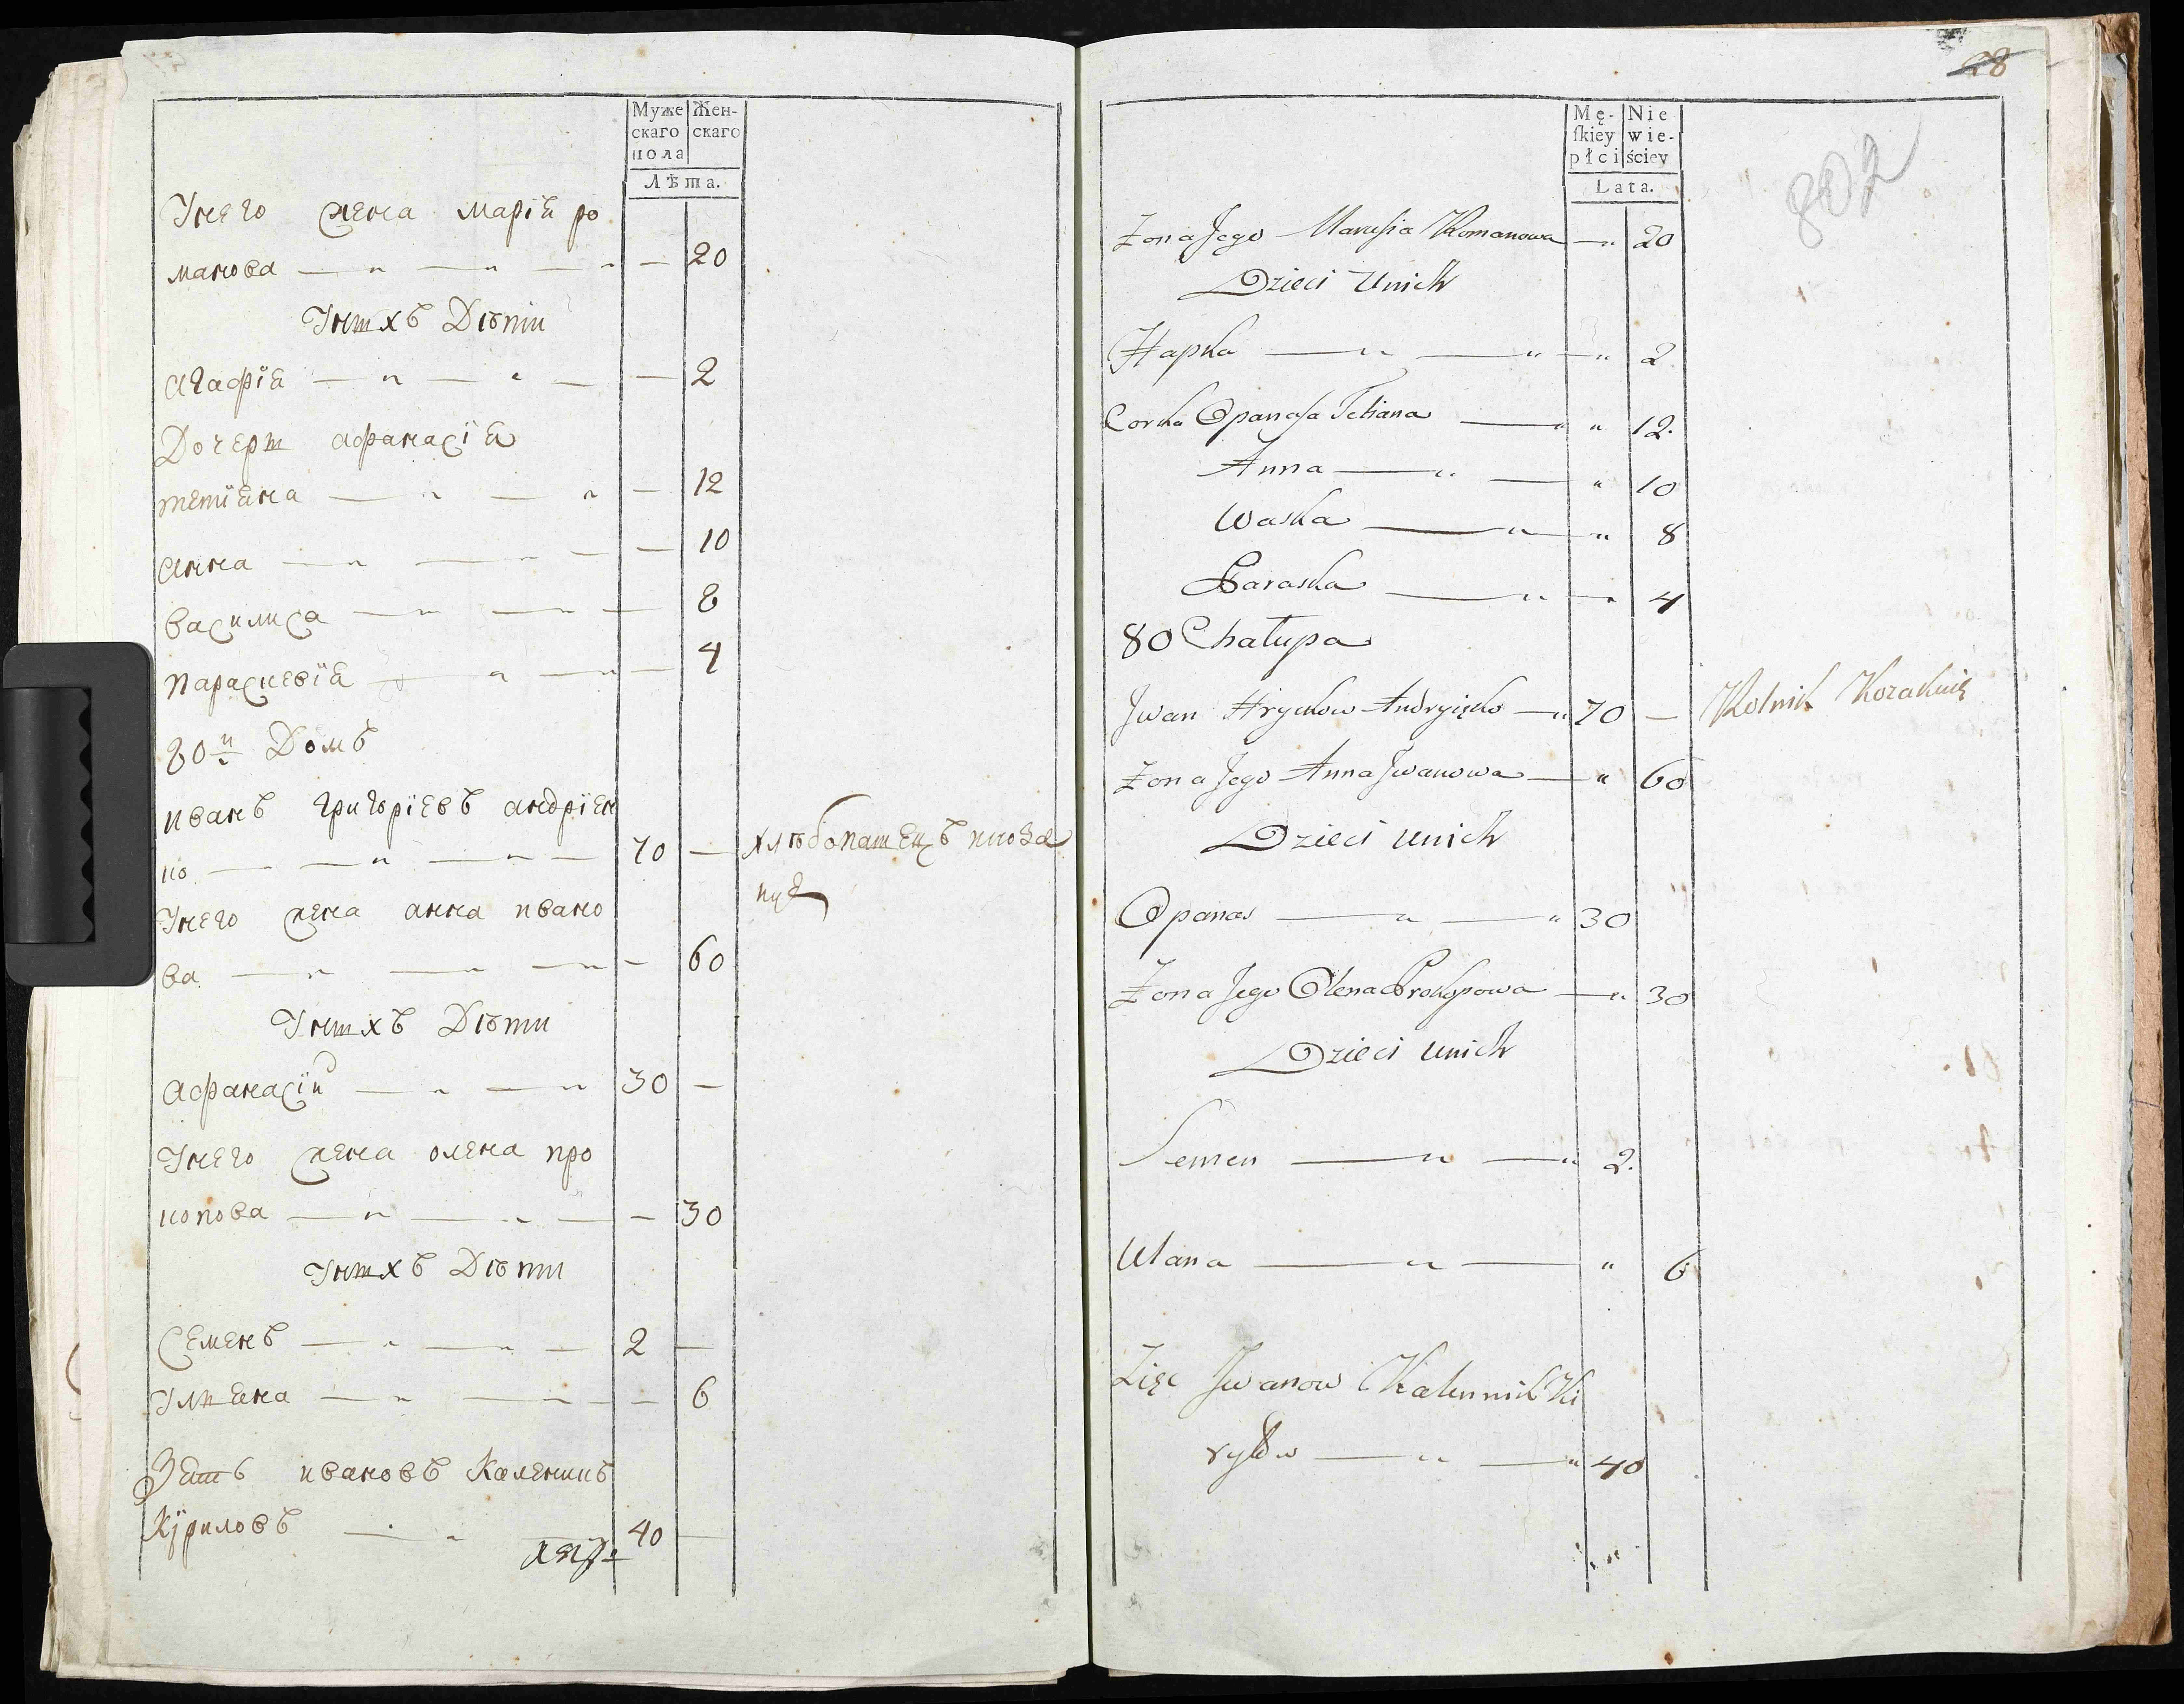 Муже
скаго
пола
Жен-
скаго
Лѣта.
Унего жена Марія ро
манова — „ — „ — „ — 20
Унихъ Дѣти
Агафія — „ — „ — — 2
Дочери афанасія
Тетіяна — „ — „ — 12
Анна — „ — — — 10
Василиса — „ — „ — 8
Параскевія — „ — „ — 4
80й Домъ
иванъ григоріевъ андріен
ко — — „ — „ — 70 — хлѣбопашецъ
Унего жена анна ивано
ва — „ — „ — „ — 60
Унихъ Дѣти
Афанасій — „ — „ 30 —
Унего жена олена про
копова — „ — „ — — 30
Унихъ Дѣти
Семенъ — „ — „ — 2 —
Уляна — „ — „ — — 6
Зять ивановъ Каленикъ
Кѵриловъ — „ 40 —
28
802
Mę-
skiey
płci
Nie
wie-
ściey
Lata.
Żona Jego Marusia Romanowa — „ 20
Dzieci Unich
Hapka — „ — „ — „ 2
Corka Opanasa Tetiana — „ „ 12.
Anna — „ — „ 10
Waska — „ — „ 8
Paraska — „ — „ 4
80 Chałupa
Jwan Hryckow Andryięko — „ 70 — Rolnik
Żona Jego Anna Jwanowa — „ 60
Dzieci unich
Opanas — „ — „ 30
Żona Jego Olena Prokopowa — „ 30
Dzieci unich
Semen — „ — „ 2.
Ulana — „ — „ 6
Zięc Jwanow Kalennik Ki
ryłow — „ — „ 40